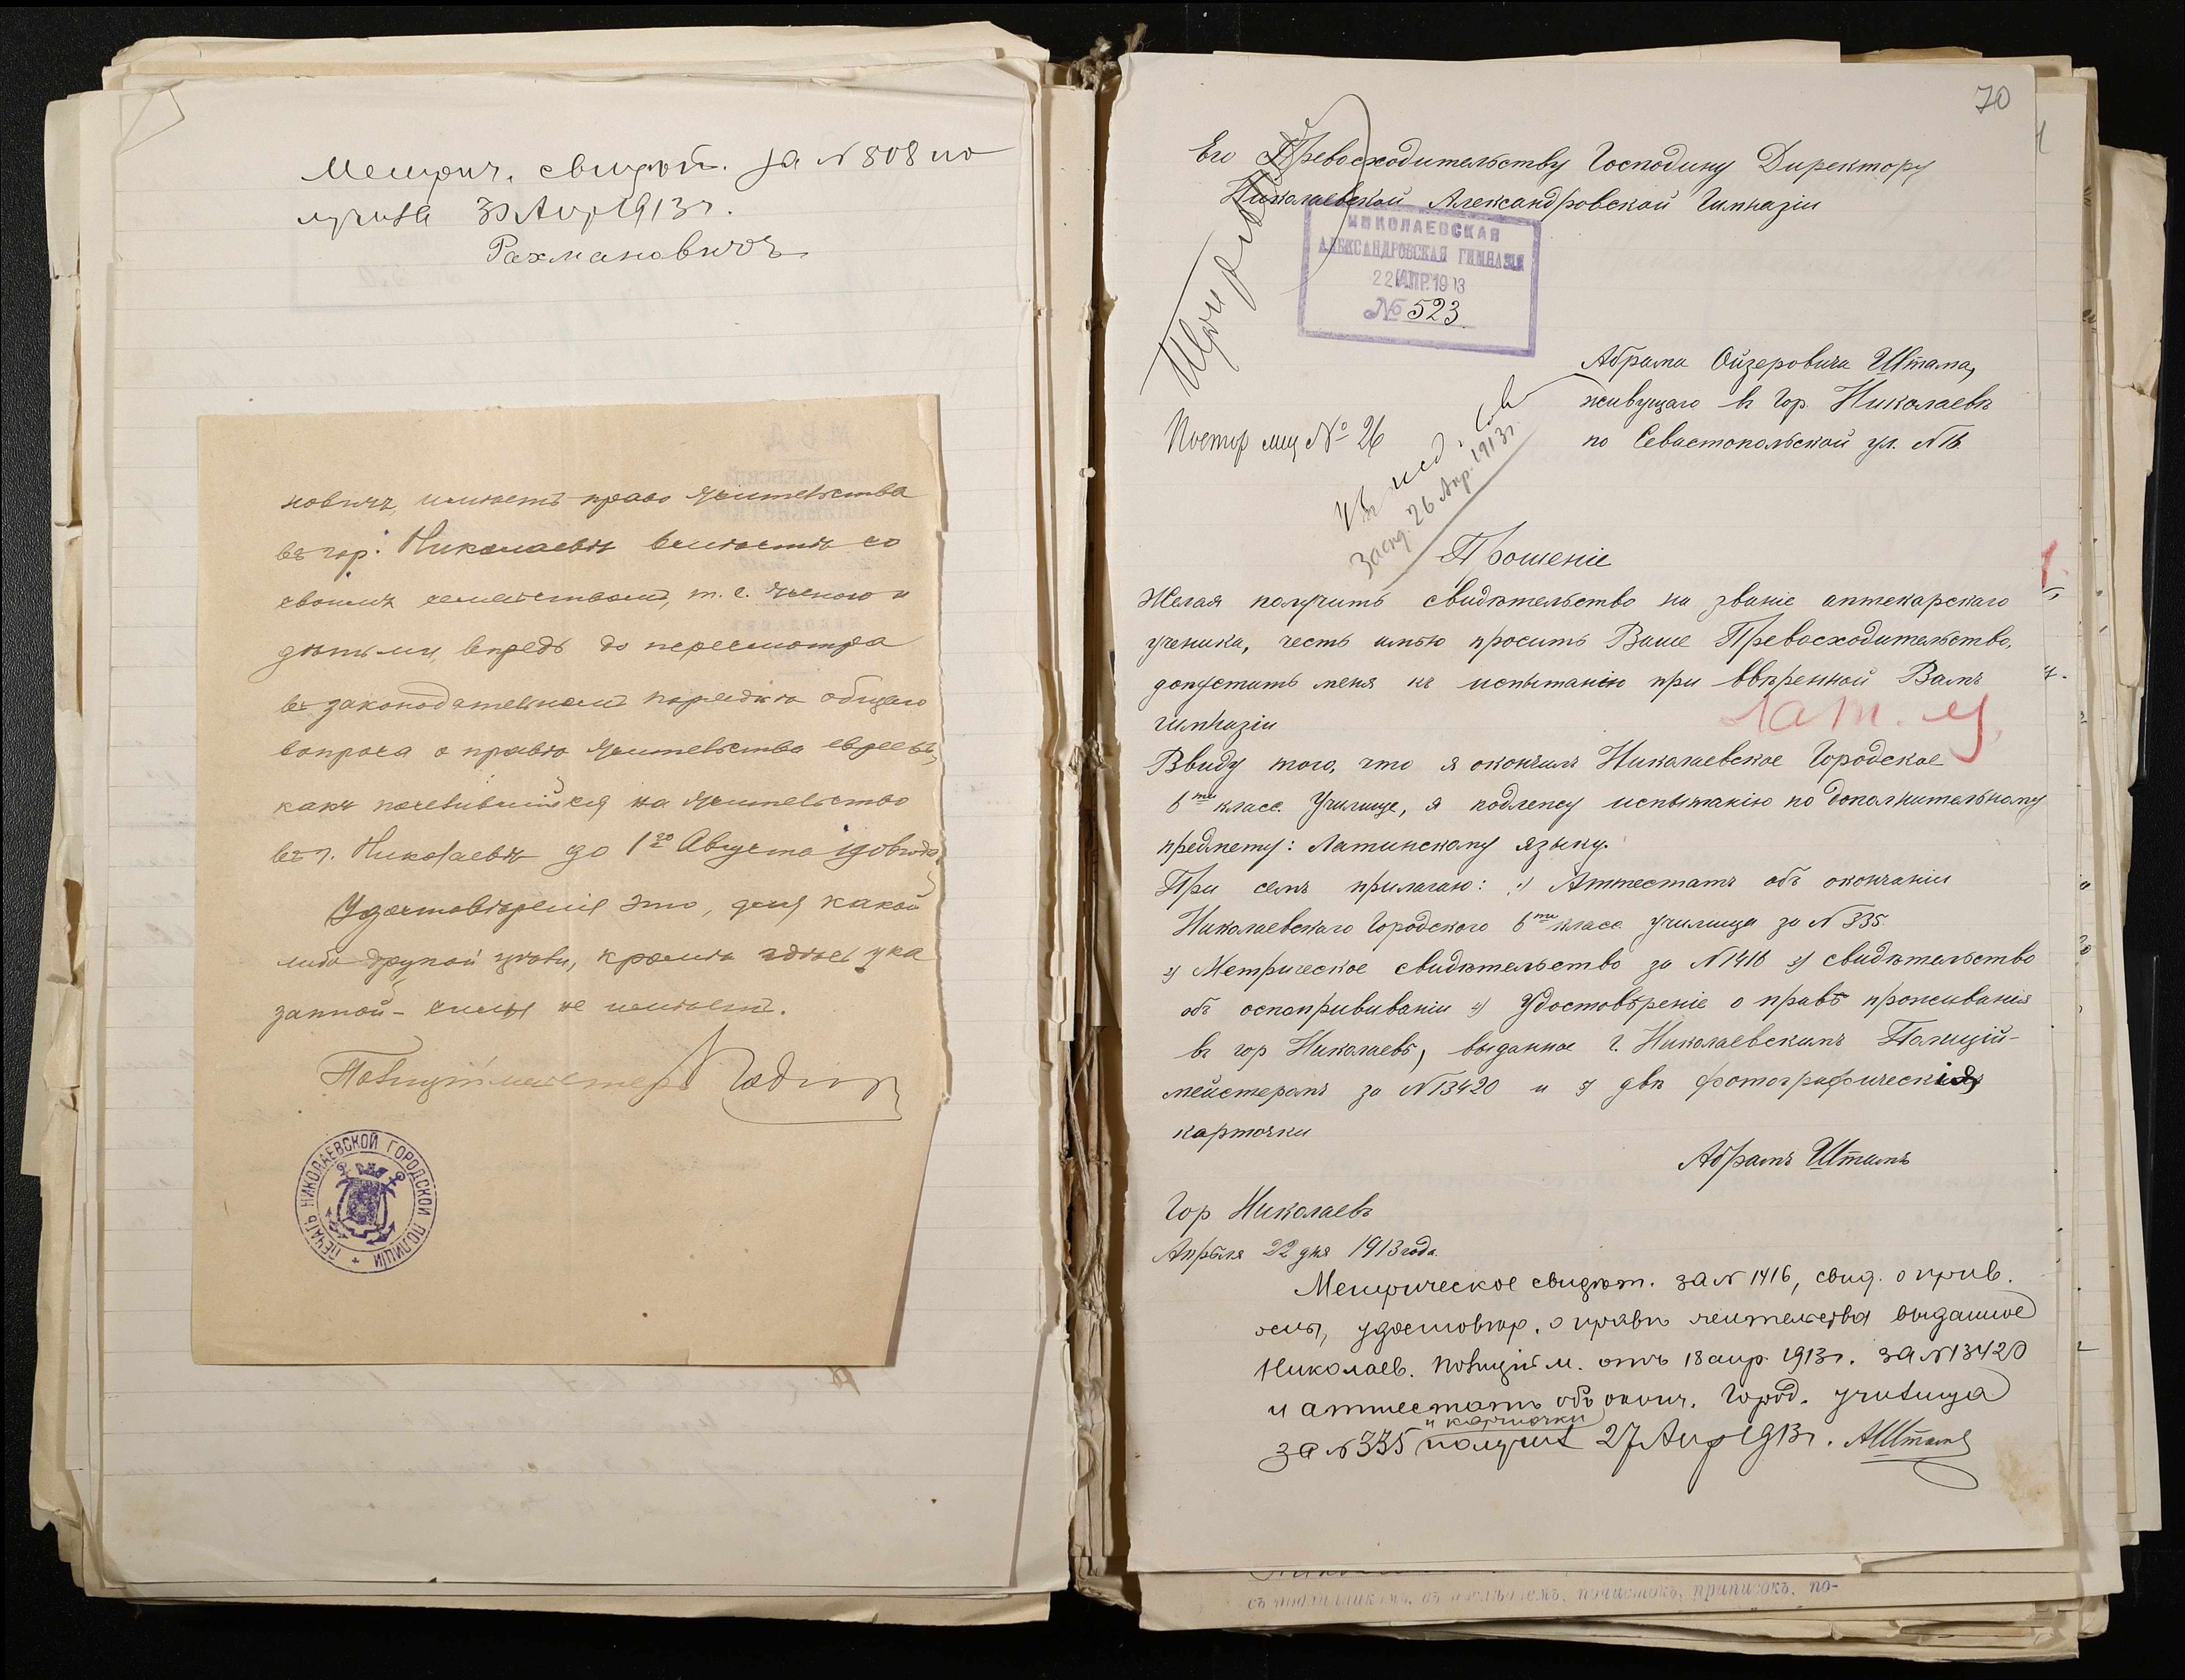 Метрич. свидѣт. за N 808 по
лучила 30 Апр 1913 г.
Рахмановичъ
новичъ, имѣетъ право жительства
въ гор. Николаевѣ вмѣстѣ со
своимъ семействомъ, т. е. женою и
дѣтьми, впредь до пересмотра
въ законодательномъ порядкѣ общаго
вопроса о правѣ жительства евреевъ,
какъ поселившійся на жительство
въ г. Николаевѣ до 1го Августа
Удостовѣреніе это, для какой
либо другой цѣли, кромѣ здѣсь ука
занной - силы не имѣетъ.
Полиціймейстеръ
ПЕЧАТЬ НИКОЛАЕВСКОЙ ГОРОДСКОЙ ПОЛИЦІИ
70
Его Превосходительству Господину Директору
Николаевской Александровской Гимназіи
НИКОЛАЕВСКАЯ
АЛЕКСАНДРОВСКАЯ ГИМНАЗІЯ
22 АПР. 1913
№ 523
Абрама Ойзеровича Штама,
живущаго въ Гор. Николаевѣ
по Севастопольской ул. N 16
№ 26
Засѣд. 26 Апр. 1913 г.
Прошеніе
Желая получить свидѣтельство на званіе аптекарскаго
ученика, честь имѣю просить Ваше Превосходительство,
допустить меня къ испытанію при ввѣренной Вамъ
гимназіи
Лат. я.
Ввиду того, что я окончилъ Николаевское Городское
6ти класс. Училище, я подлежу испытанію по дополнительному
предмету: Латинскому языку.
При семъ прилагаю: 1) Аттестатъ объ окончаніи
Николаевскаго Городского 6ти класс. училища за N 335
2) Метрическое свидѣтельство за N 1416 3) свидѣтельство
объ оспопрививаніи 4) Удостовѣреніе о правѣ проживанія
въ гор Николаевѣ, выданное г. Николаевскимъ Полицій-
мейстеромъ за N 13420 и 5) двѣ фотографическія
карточки
Абрамъ Штамъ
Гор Николаевъ
Апрѣля 22 дня 1913 года
Метрическое свидѣт. за N 1416, свид. о прив.
оспы, удостовѣр. о правѣ жительства выданное
Николаев. Полиційм. отъ 18 апр. 1913 г. за N 13420
и аттестатъ объ оконч. Город. училища
и карточки
за N 335 получил 27 Апр 1913 г. АШтамъ